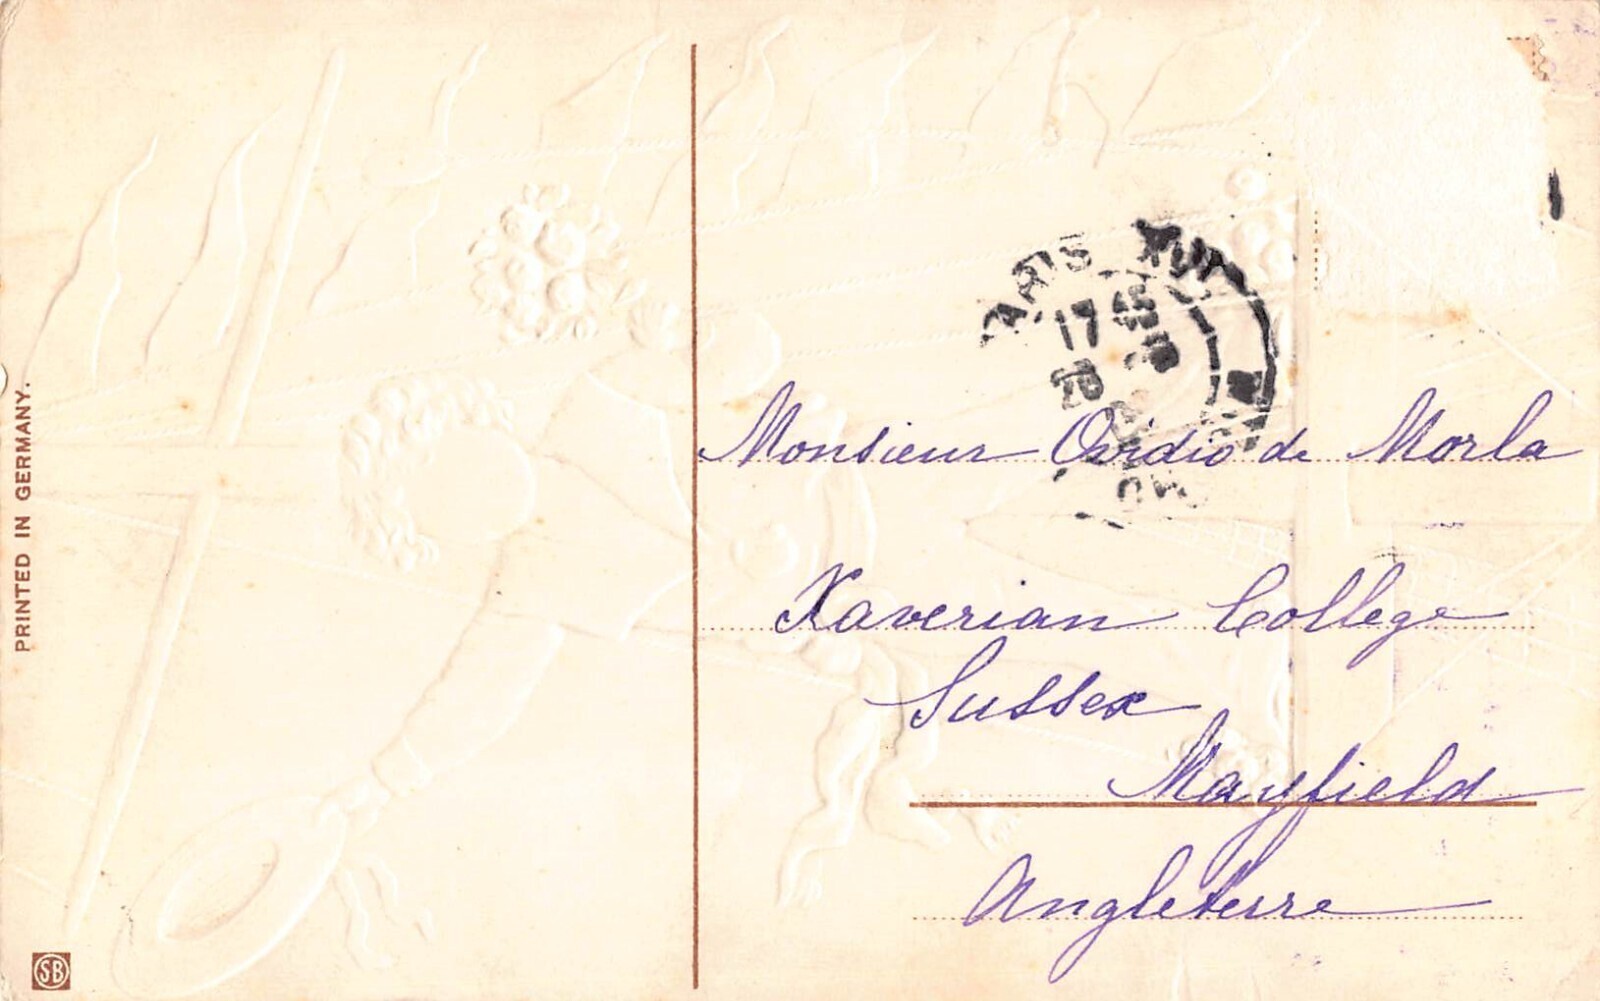 PRINTED IN GERMANY.
SB
PARIS XVI
17 45
28
Monsieur Ovidio de Morla
Xaverian College
Sussex
Mayfield
Angleterre